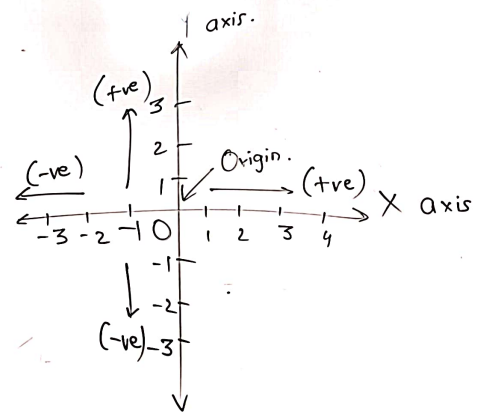 Y axis.
(+ve)
3
2
1
Origin.
(-ve)
(+ve)
X axis
-3 -2 -1 0 1 2 3 4
-1
-2
(-ve)
-3